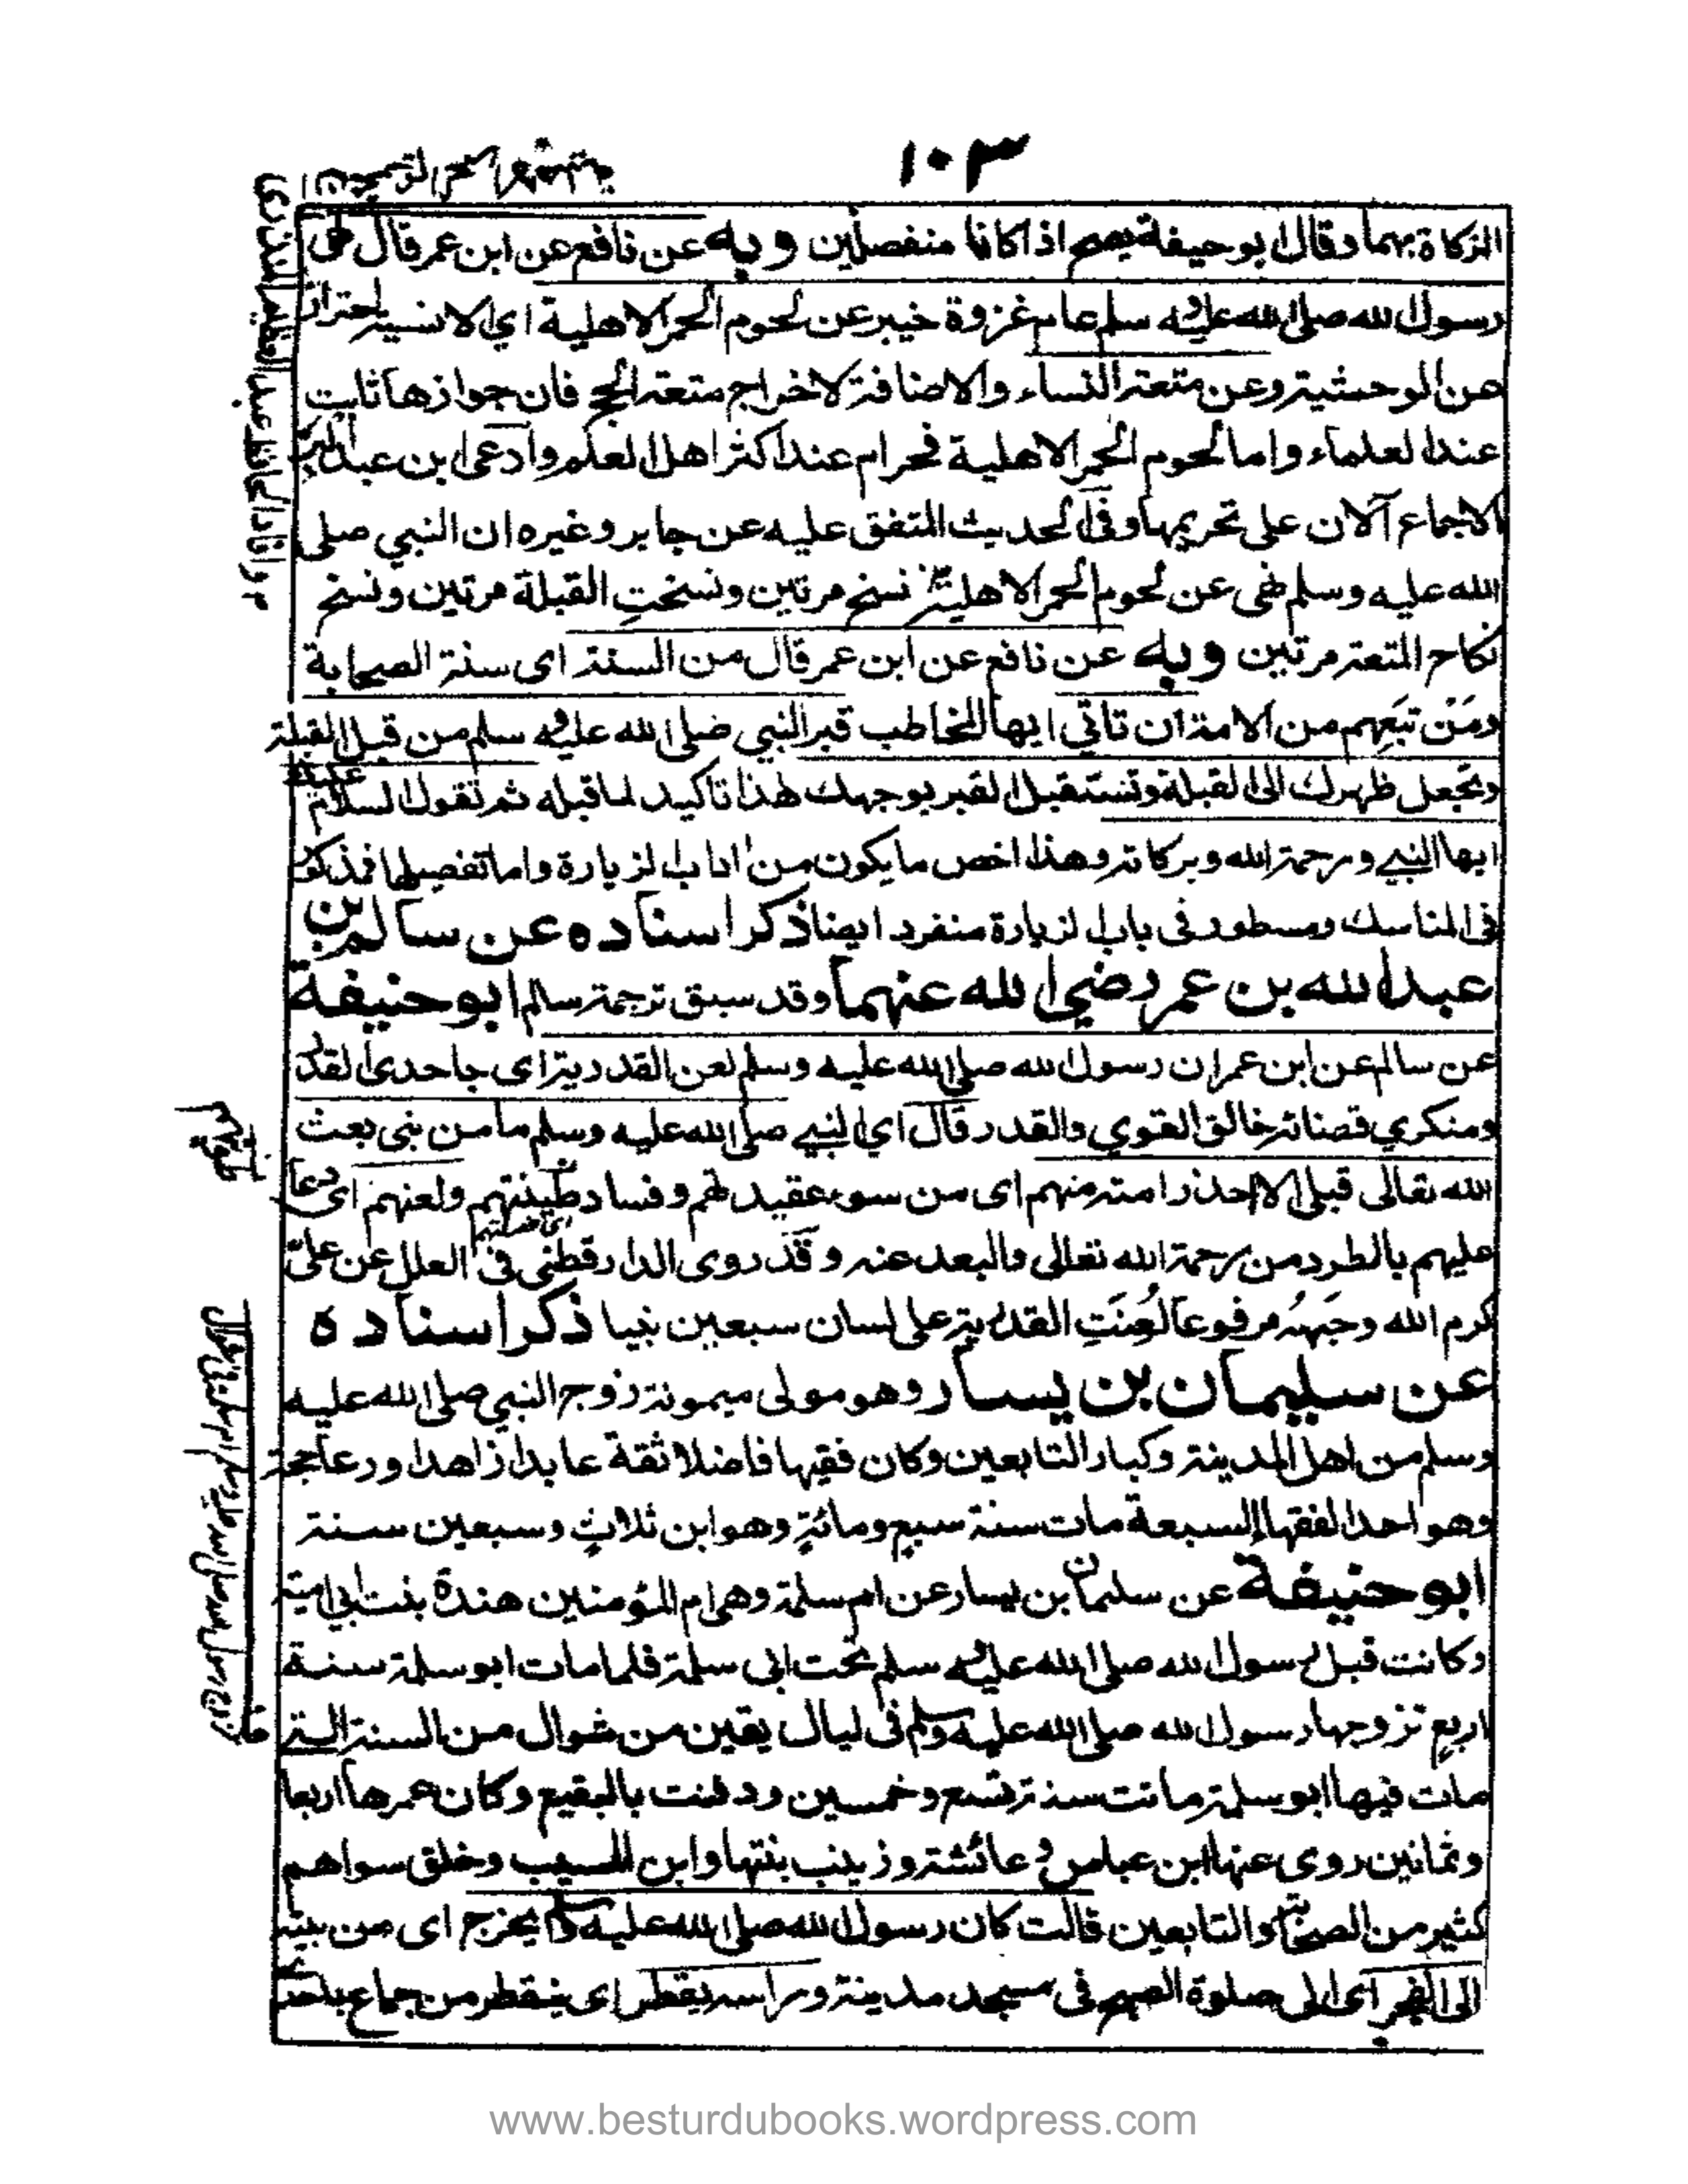 ١٠٣
الزكاة بهما وقال ابو حنيفة يصح اذا كانا منفصلين وبه عن نافع عن ابن عمر قال نهى
رسول الله صلى الله عليه وسلم عام غزوة خيبر عن لحوم الحمر الاهلية اي الانسية احتراز
عن الوحشية وعن متعة النساء والاضافة لاخراج متعة الحج فان جوازها ثابت
عند العلماء واما لحوم الحمر الاهلية فحرام عند اكثر اهل العلم وادعى ابن عبد البر
الاجماع الآن على تحريمها وفى الحديث المتفق عليه عن جابر وغيره ان النبي صلى
الله عليه وسلم نهى عن لحوم الحمر الاهلية نسخ مرتين ونسختِ القبلة مرتين ونسخ
نكاح المتعة مرتين وبه عن نافع عن ابن عمر قال من السنة اى سنة الصحابة
ومَنْ تَبَعِهم من الامة ان تاتي ايها المخاطب قبر النبي صلى الله عليه وسلم من قبل القبلة
وتجعل ظهرك الى القبلة وتستقبل القبر بوجهك هذا تاكيد لما قبله ثم تقول السلام عليك
ايها النبي ورحمة الله وبركاته وهذا اخص ما يكون من اداب الزيارة واما تفصيلها فمذكور
فى المناسك ومسطور فى باب الزيارة منفرد ايضا ذكر اسناده عن سالم بن
عبد الله بن عمر رضي الله عنهما وقد سبق ترجمة سالم ابو حنيفة
عن سالم عن ابن عمر ان رسول الله صلى الله عليه وسلم لعن القدرية اى جاحدى القدر
ومنكري قضائه خالق القوي والقدر قال اي النبي صلى الله عليه وسلم ما من نبى بعث
الله تعالى قبلى الا حذر امته منهم اى من سوء عقيدتهم وفساد طينتهم ولعنهم اى دعا
عليهم بالطرد من رحمة الله تعالى والبعد عنه وقد روى الدارقطنى فى العلل عن علىّ
كرم الله وجهَهُ مرفوعا لُعِنَتِ القدرية على لسان سبعين نبيا ذكر اسناده
عن سليمان بن يسار وهو مولى ميمونة زوج النبي صلى الله عليه
وسلم من اهل المدينة وكبار التابعين وكان فقيها فاضلا ثقة عابدا زاهدا ورعا حجة
وهو احد الفقهاء السبعة مات سنة سبع ومائةٍ وهو ابن ثلاثٍ وسبعين سنة
ابو حنيفة عن سليمان بن يسار عن ام سلمة وهى ام المؤمنين هندة بنت ابي امية
وكانت قبل رسول الله صلى الله عليه وسلم تحت ابى سلمة فلما مات ابو سلمة سنة
اربعٍ تزوجها رسول الله صلى الله عليه وسلم فى ليال يقين من شوال من السنة التى
مات فيها ابو سلمة ماتت سنة تسع وخمسين ودفنت بالبقيع وكان عمرها اربعا
وثمانين روى عنها ابن عباس وعائشة وزينب بنتها وابن المسيب وخلق سواهم
كثير من الصحابة والتابعين قالت كان رسول الله صلى الله عليه وسلم يخرج اى من بيته
الى الفجر اى الى صلوة الصبح فى مسجد مدينة وراسه يقطر اى ينقطر من جماع
www.besturdubooks.wordpress.com